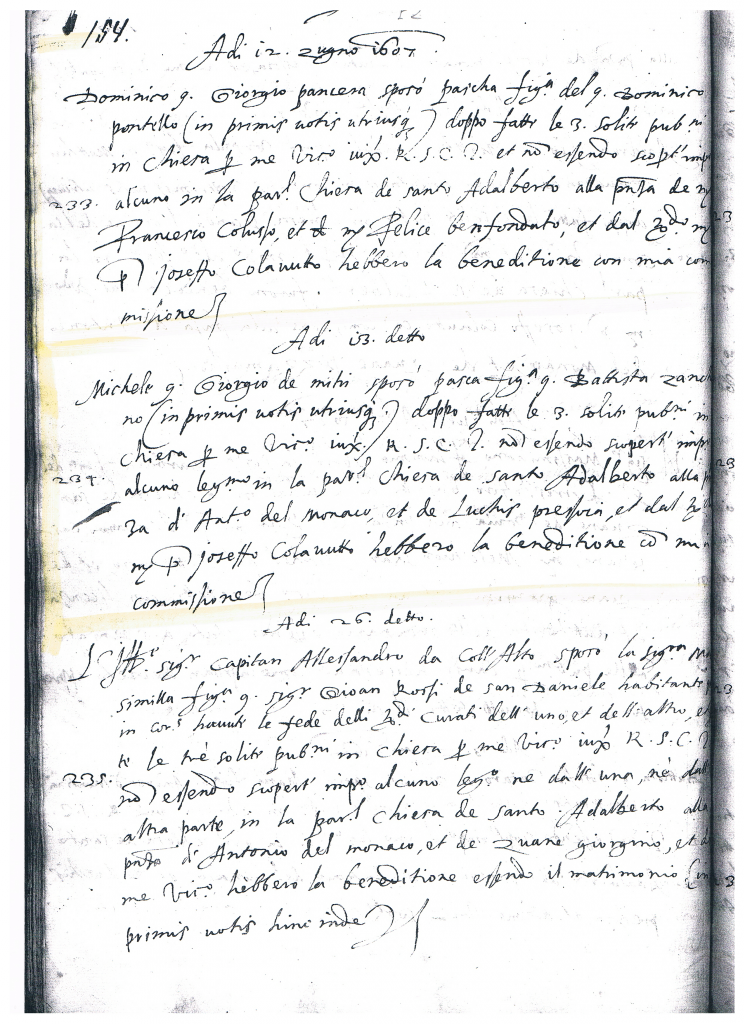 154.
Adi 12. zugno 1607
Dominico q. Giorgio pancera sposò pascha fig.ª del q. Dominico
pontello (in primis uotis utriusq3) doppo fatte le 3. solite pub.ni
in Chiesa p me Vic.o iux. R. S. C. T. et nõ essendo scopt' imp
233. alcuno in la par.l Chiesa de santo Adalberto alla pñza de
Francesco Colusso, et d mr Felice benfondato, et dal
p Joseffo Colauutto hebbero la beneditione con mia com
missione
Adi 13. detto
Michele q. Giorgio de mitri sposò pasca fig.ª q. Battista zan
no (in primis uotis utriusq3) doppo fatte le 3. solite pub.ni in
chiesa p me Vic.o iux. R. S. C. T. nõ essendo scopert' imp
234. alcuno leg.mo in la par.l Chiesa de santo Adalberto alla p
za d' Ant.o del monaco, et de Luchis pressora, et dal
mr p Joseffo Colauutto hebbero la beneditione cõ mia
commissione
Adi 26. detto.
sig.r Capitan Allessandro da Coll'Alto sposò la sig.ra Ma
similla fig.ª q. sig.r Gioan Rossi de san Daniele habitante
in hauute le fede delli Curati dell' uno, et dell' altro, et
te le trè solite pub.ni in Chiesa p me Vic.o iux R. S. C. T.
235. nõ essendo scopert' imp.o alcuno leg.o ne dall' una, nè dall
altra parte, in la par.l Chiesa de santo Adalberto alla
pñza d' Antonio del monaco, et de zuane giorgino, et d
me Vic.o hebbero la beneditione essendo il matrimonio (in
primis uotis hinc inde)